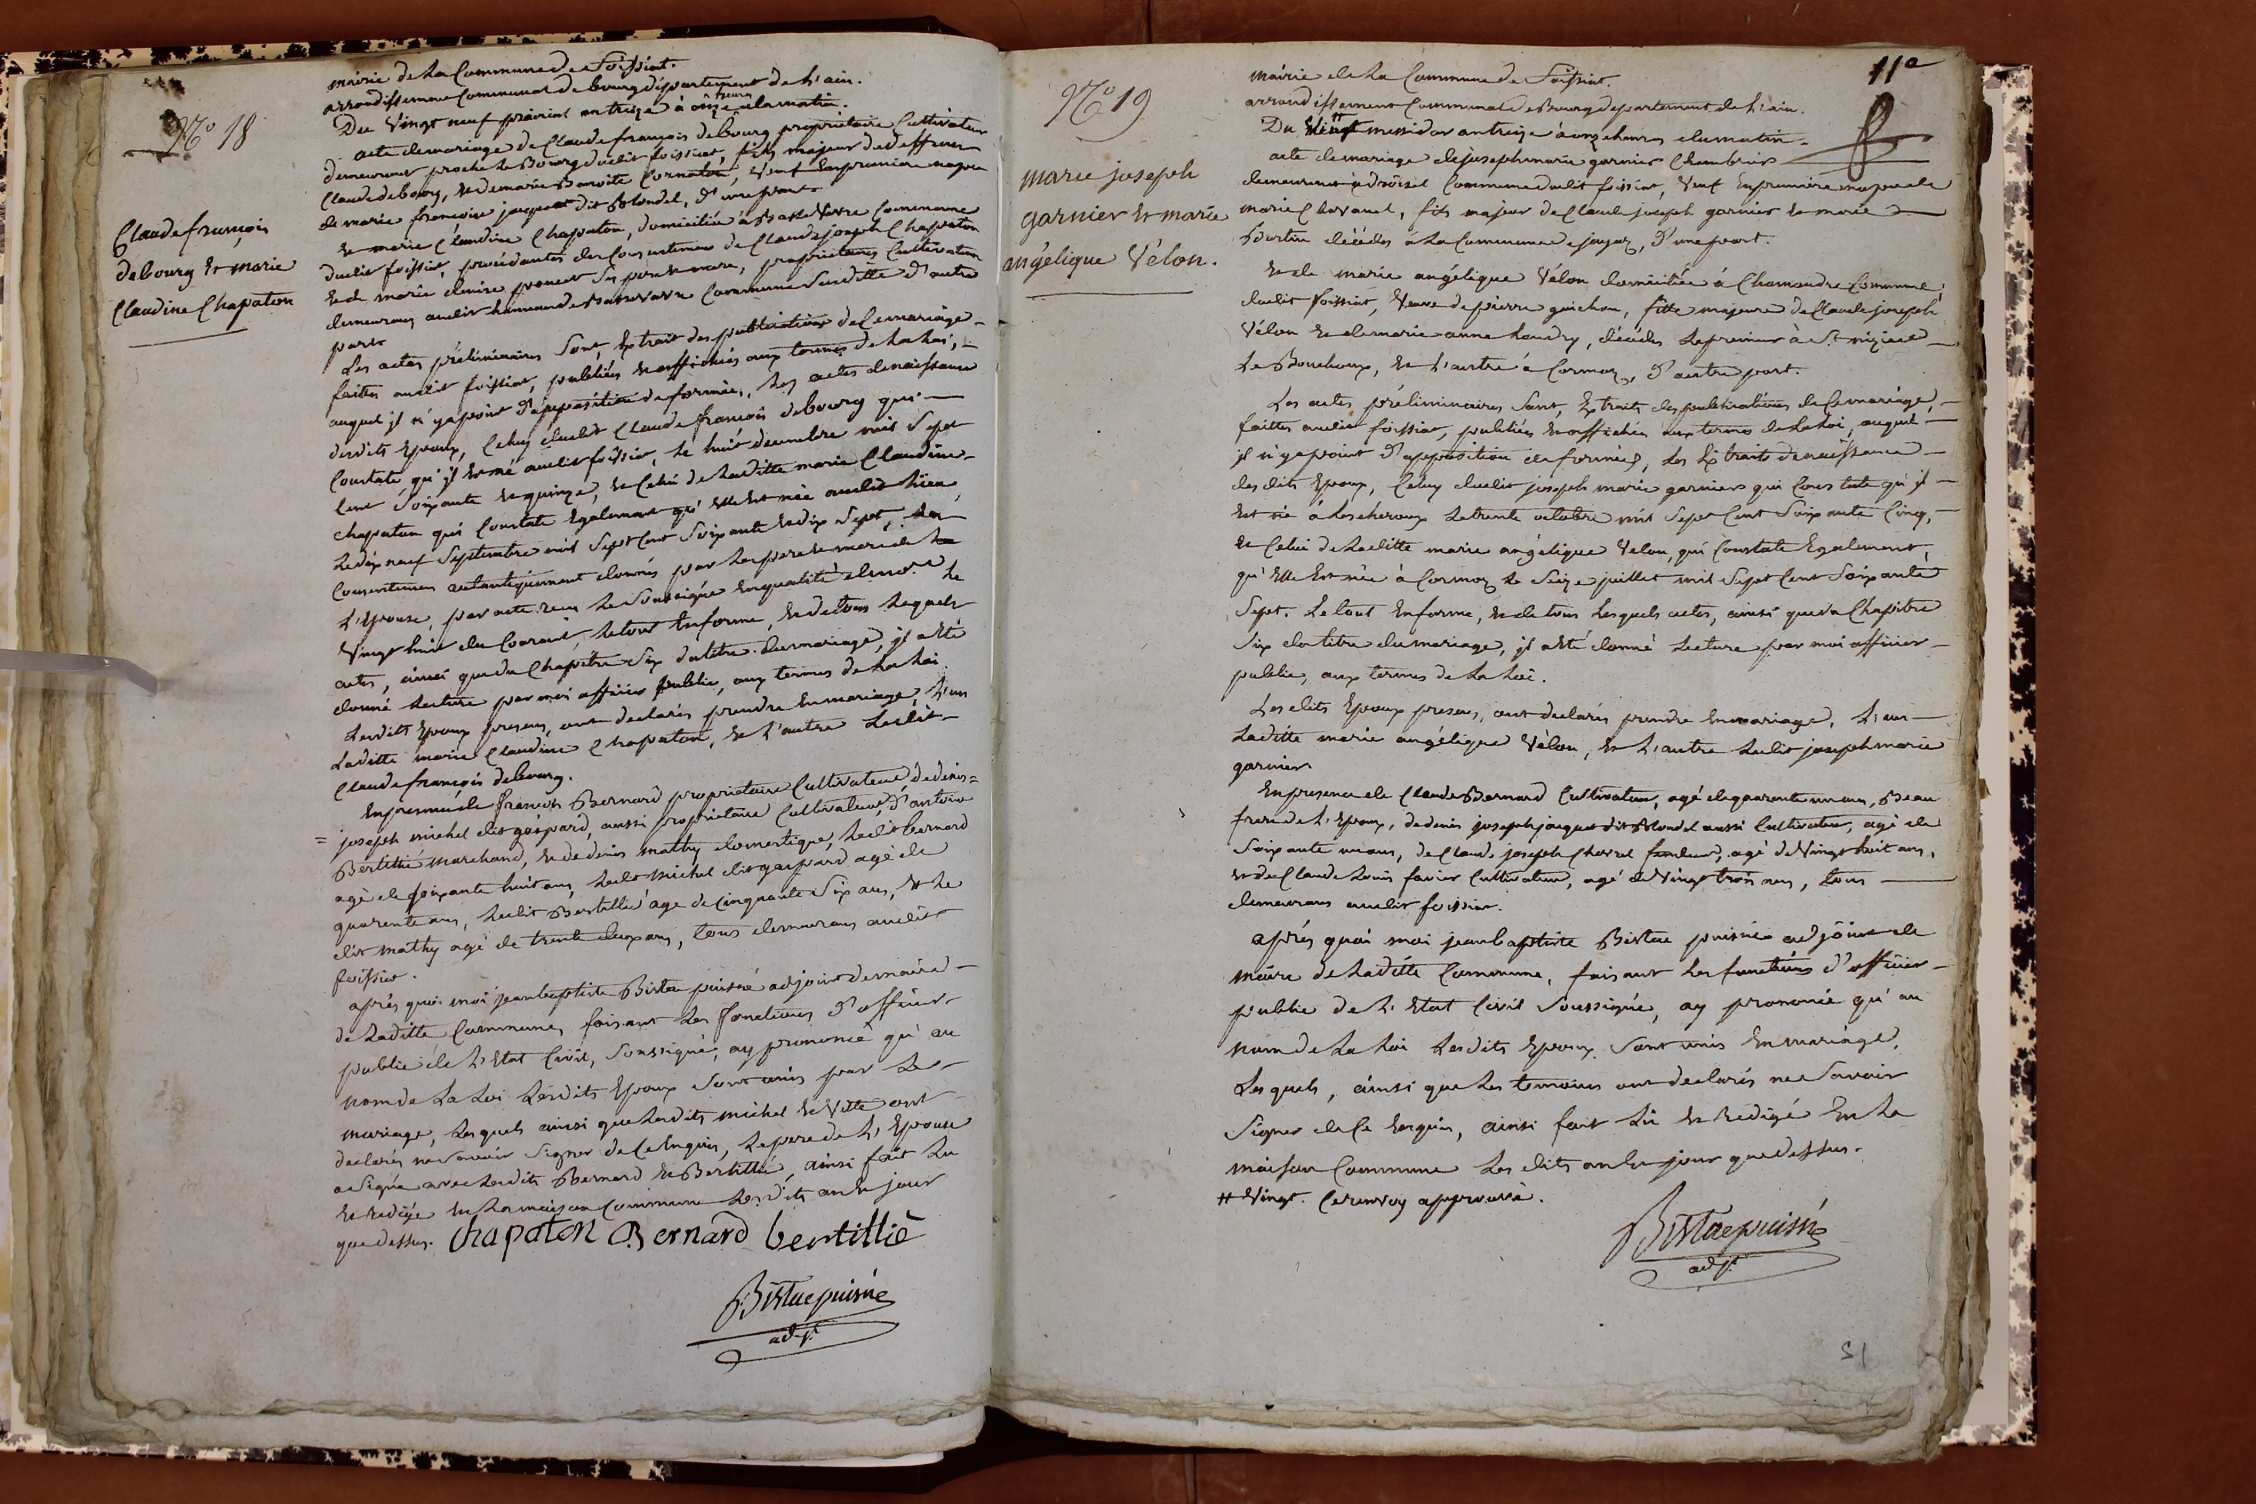 No 18
Claude françois
debourg et marie
Claudine Chapaton
mairie de la Commune de foissiat.
arrondissement Communal de bourg département de l'ain.
Du Vingt neuf prairial an treize à onze heures du matin.
acte de mariage de Claude françois debourg propriétaire Cultivateur
demeurant proche le Bourg dudit foissiat, fils majeur de deffunt
Claude debourg, et de marie Benoite Cornaton, Veuf En première nopce
de marie françoise jacquet dit Blondel, d'une part
et marie Claudine Chapaton, domiciliée à Commune
dudit foissiat, procédante du Consentement de Claude joseph Chapaton
et de marie denise ponset Ses père et mere, propriétaires Cultivateurs
demeurans audit hameau de Commune Susditte d'autre
part.
Les actes préliminaires Sont, Extrait des publications de Ce mariage
faites audit foissiat, publiées et affichées aux termes de la Loi,
auquel il n'y a point d'opposition de formée, les actes de naissance
desdits Epoux, Celuy dudit Claude françois debourg qui
Constate qu'il Est né audit foissiat, le huit decembre mil Sept
Cent Soixante et quinze, et Celui de Laditte marie Claudine
chapaton qui Constate Egalement qu'elle Est née audit Lieu,
Le dix neuf Septembre mil Sept Cent Soixante et dix Sept, Les
Consentemens autantiquement donnés par Les pere et mere de la
L'Epouse, par acte reçu Le Soussigné En qualité de le
Vingt huit du Courant, Le tout En forme, et de tous lesquels
actes, ainsi que du Chapitre Six du titre du mariage, il a Eté
donné Lecture par moi officier public, aux termes de la Loi.
Lesdits Epoux presens, ont declarés prendre En mariage, L'un
Laditte marie Claudine Chapaton, et L'autre Ledit
Claude françois debourg.
En presence de françois Bernard propriétaire Cultivateur, de denis =
= joseph michel dit gaspard, aussi propriétaire Cultivateur, d'antoine
Bertillié marchand, et de denis mathy domestique, Ledit bernard
agé de Soixante huit ans, Ledit michel dit gaspard agé de
quarente ans, Ledit Bertillié agé de Cinquante Six ans, et Le
dit mathy agé de trente deux ans, tous demeurans audit
foissiat.
après quoi moi jean baptiste Bistac puisné adjoint de maire
de Laditte Commune, faisant Les fonctions d'officier
public de L'Etat Civil, Soussigné, ay prononcé qu'au
nom de La Loi Lesdits Epoux Sont unis par Le
mariage, Lesquels ainsi que Lesdits michel et ont
declarés ne Savoir Signer de Ce Enquis, Le pere de L'Epouse
a Signé avec Lesdits Bernard et Bertillié, ainsi fait Lu
et Redigé En La maison Commune Lesdits an et jour
que dessus. Chapaton Bernard bertillié
Bistac puisné
adjt
11e
No 19
marie joseph
garnier et marie
angélique Vélon.
mairie de La Commune de Foissiat.
arrondissement Communal de Bourg departement de L'ain.
Du # messidor an treize à onze heures du matin.
acte de mariage de joseph marie garnier Chambrier
demeurant à Commune dudit foissiat, Veuf En première nopce de
marie Chovanel, fils majeur de Claude joseph garnier et marie
Burtin décédés à La Commune de jayat, d'une part.
et de marie angélique Vélon domiciliée à Chamandre Commune
dudit foissiat, Veuve de pierre guichon, fille majeure de Claude joseph
Vélon et de marie anne Landry, décédés Le premier à St. nizier
Le Bouchoux, et L'autre à Cormoz, d'autre part.
Les actes préliminaires Sont, Extraits des publications de Ce mariage,
faittes audit foissiat, publiées et affichées aux termes de La Loi, auquel
il n'y a point d'opposition de formée, Les Extraits de naissance
des dits Epoux, Celuy dudit joseph marie garnier qui Constate qu'il
Est né à Lescheroux Le trente octobre mil Sept Cent Soixante Cinq,
et Celui de Laditte marie angélique Velon, qui Constate Egalement,
qu'Elle Est née à Cormoz le Seize juillet mil Sept Cent Soixante
Sept. Le tout En forme, et de tous Lesquels actes, ainsi que du Chapitre
Six du titre du mariage, il a Eté donné Lecture par moi officier
public, aux termes de La Loi.
Les dits Epoux presens, ont declarés prendre En mariage, L'un
Laditte marie angélique Vélon, et L'autre Ledit joseph marie
garnier.
En presence de Claude Bernard Cultivateur, agé de quarente un ans, Beau
frere de L'Epoux, de denis joseph jacquet dit Blondel aussi Cultivateur, agé de
Soixante un ans, de Claude joseph Chevrel agé de Vingt huit ans,
et de Claude Louis favier Cultivateur, agé de Vingt trois ans, tous
demeurans audit foissiat.
après quoi moi jean baptiste Bistac puisné adjoint de
maire de Laditte Commune, faisant Les fonctions d'officier
public de L'Etat Civil Soussigné, ay prononcé qu'au
nom de La Loi Les dits Epoux Sont unis En mariage,
Les quels, ainsi que Les temoins ont declarés ne Savoir
Signer de Ce Enquis, ainsi fait Lu et Redigé En La
maison Commune Les dits an et jour que dessus.
# Vingt. Ce renvoy approuvé.
Bistac puisné
adjt
51